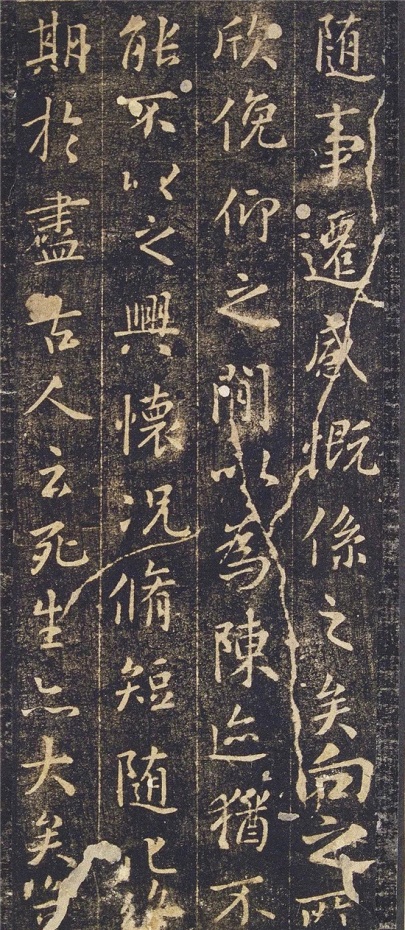 隨事遷感慨係之矣向之所
欣俛仰之間以為陳迹猶不
能不以之興懷况脩短隨化終
期於盡古人云死生亦大矣豈